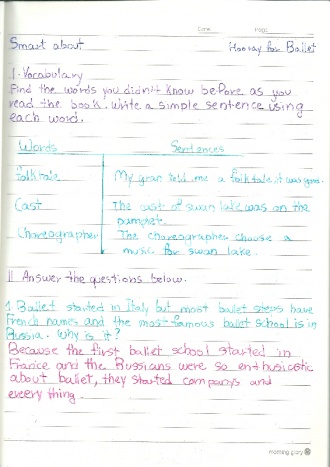 Date Page
Smart about Hooray for Ballet
1. Vocabulary
Find the words you didn't know before as you
read the book. Write a simple sentence using
each word.
Words Sentences
folktale My gran told me a folktale it was good.
Cast The cast of swan lake was on the
pamplet.
Choreographer The choreographer choose a
music for swan lake.
II Answer the questions below.
1. Ballet started in Italy but most ballet steps have
French names and the most famous ballet school is in
Russia. Why is it?
Because the first ballet school started in
France and the Russians were so enthusicatic
about ballet, they started companys and
every thing.
morning glory